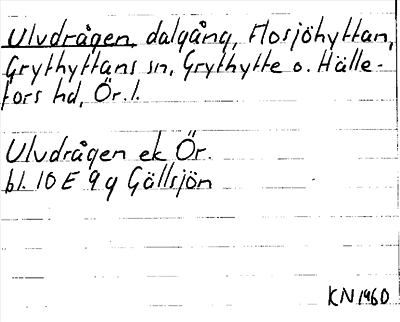 Ulvdrågen, dalgång, Hosjöhyttan,
Grythyttans sn, Grythytte o. Hälle-
fors hd, Ör. l.
Ulvdrågen ek Ör.
bl. 10 E 9 g Gällsjön
KN 1960